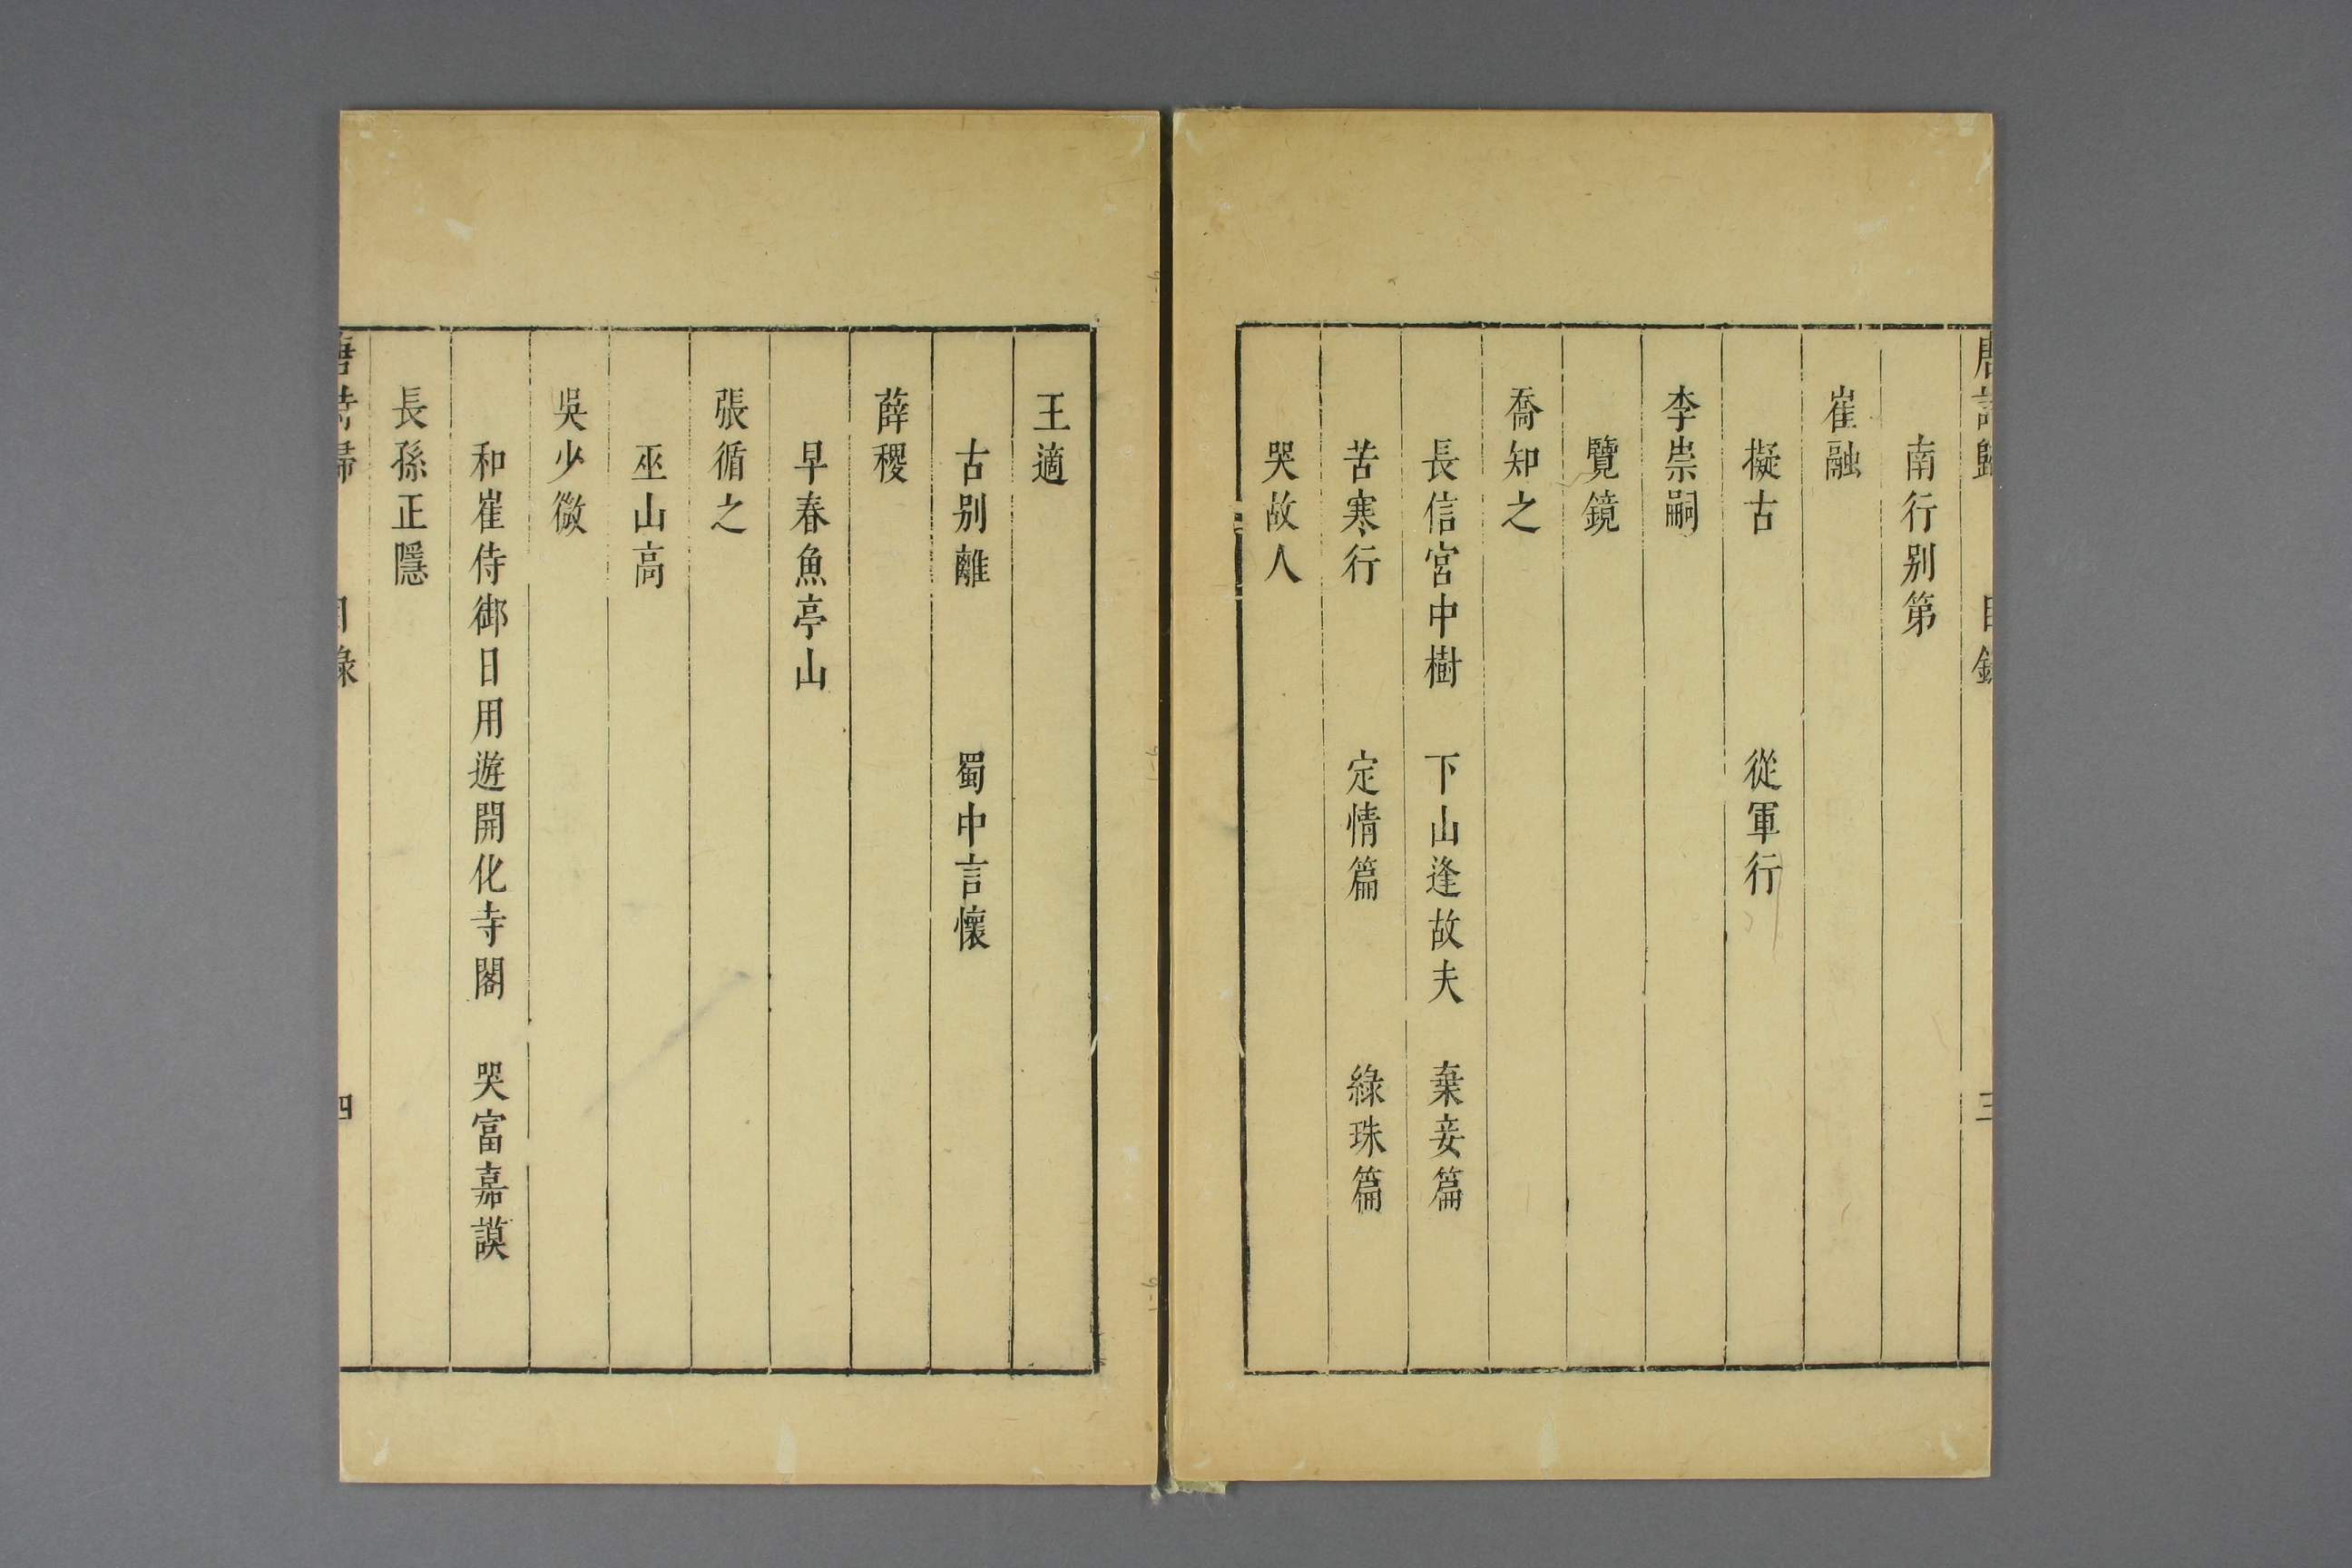 唐詩歸 目錄 三
南行別第
崔融
擬古 從軍行
李崇嗣
覽鏡
喬知之
長信宮中樹 下山逢故夫 棄妾篇
苦寒行 定情篇 綠珠篇
哭故人
王適
古別離 蜀中言懷
薛稷
早春魚亭山
張循之
巫山高
吳少微
和崔侍御日用遊開化寺閣 哭富嘉謨
長孫正隱
唐詩歸 目錄 四